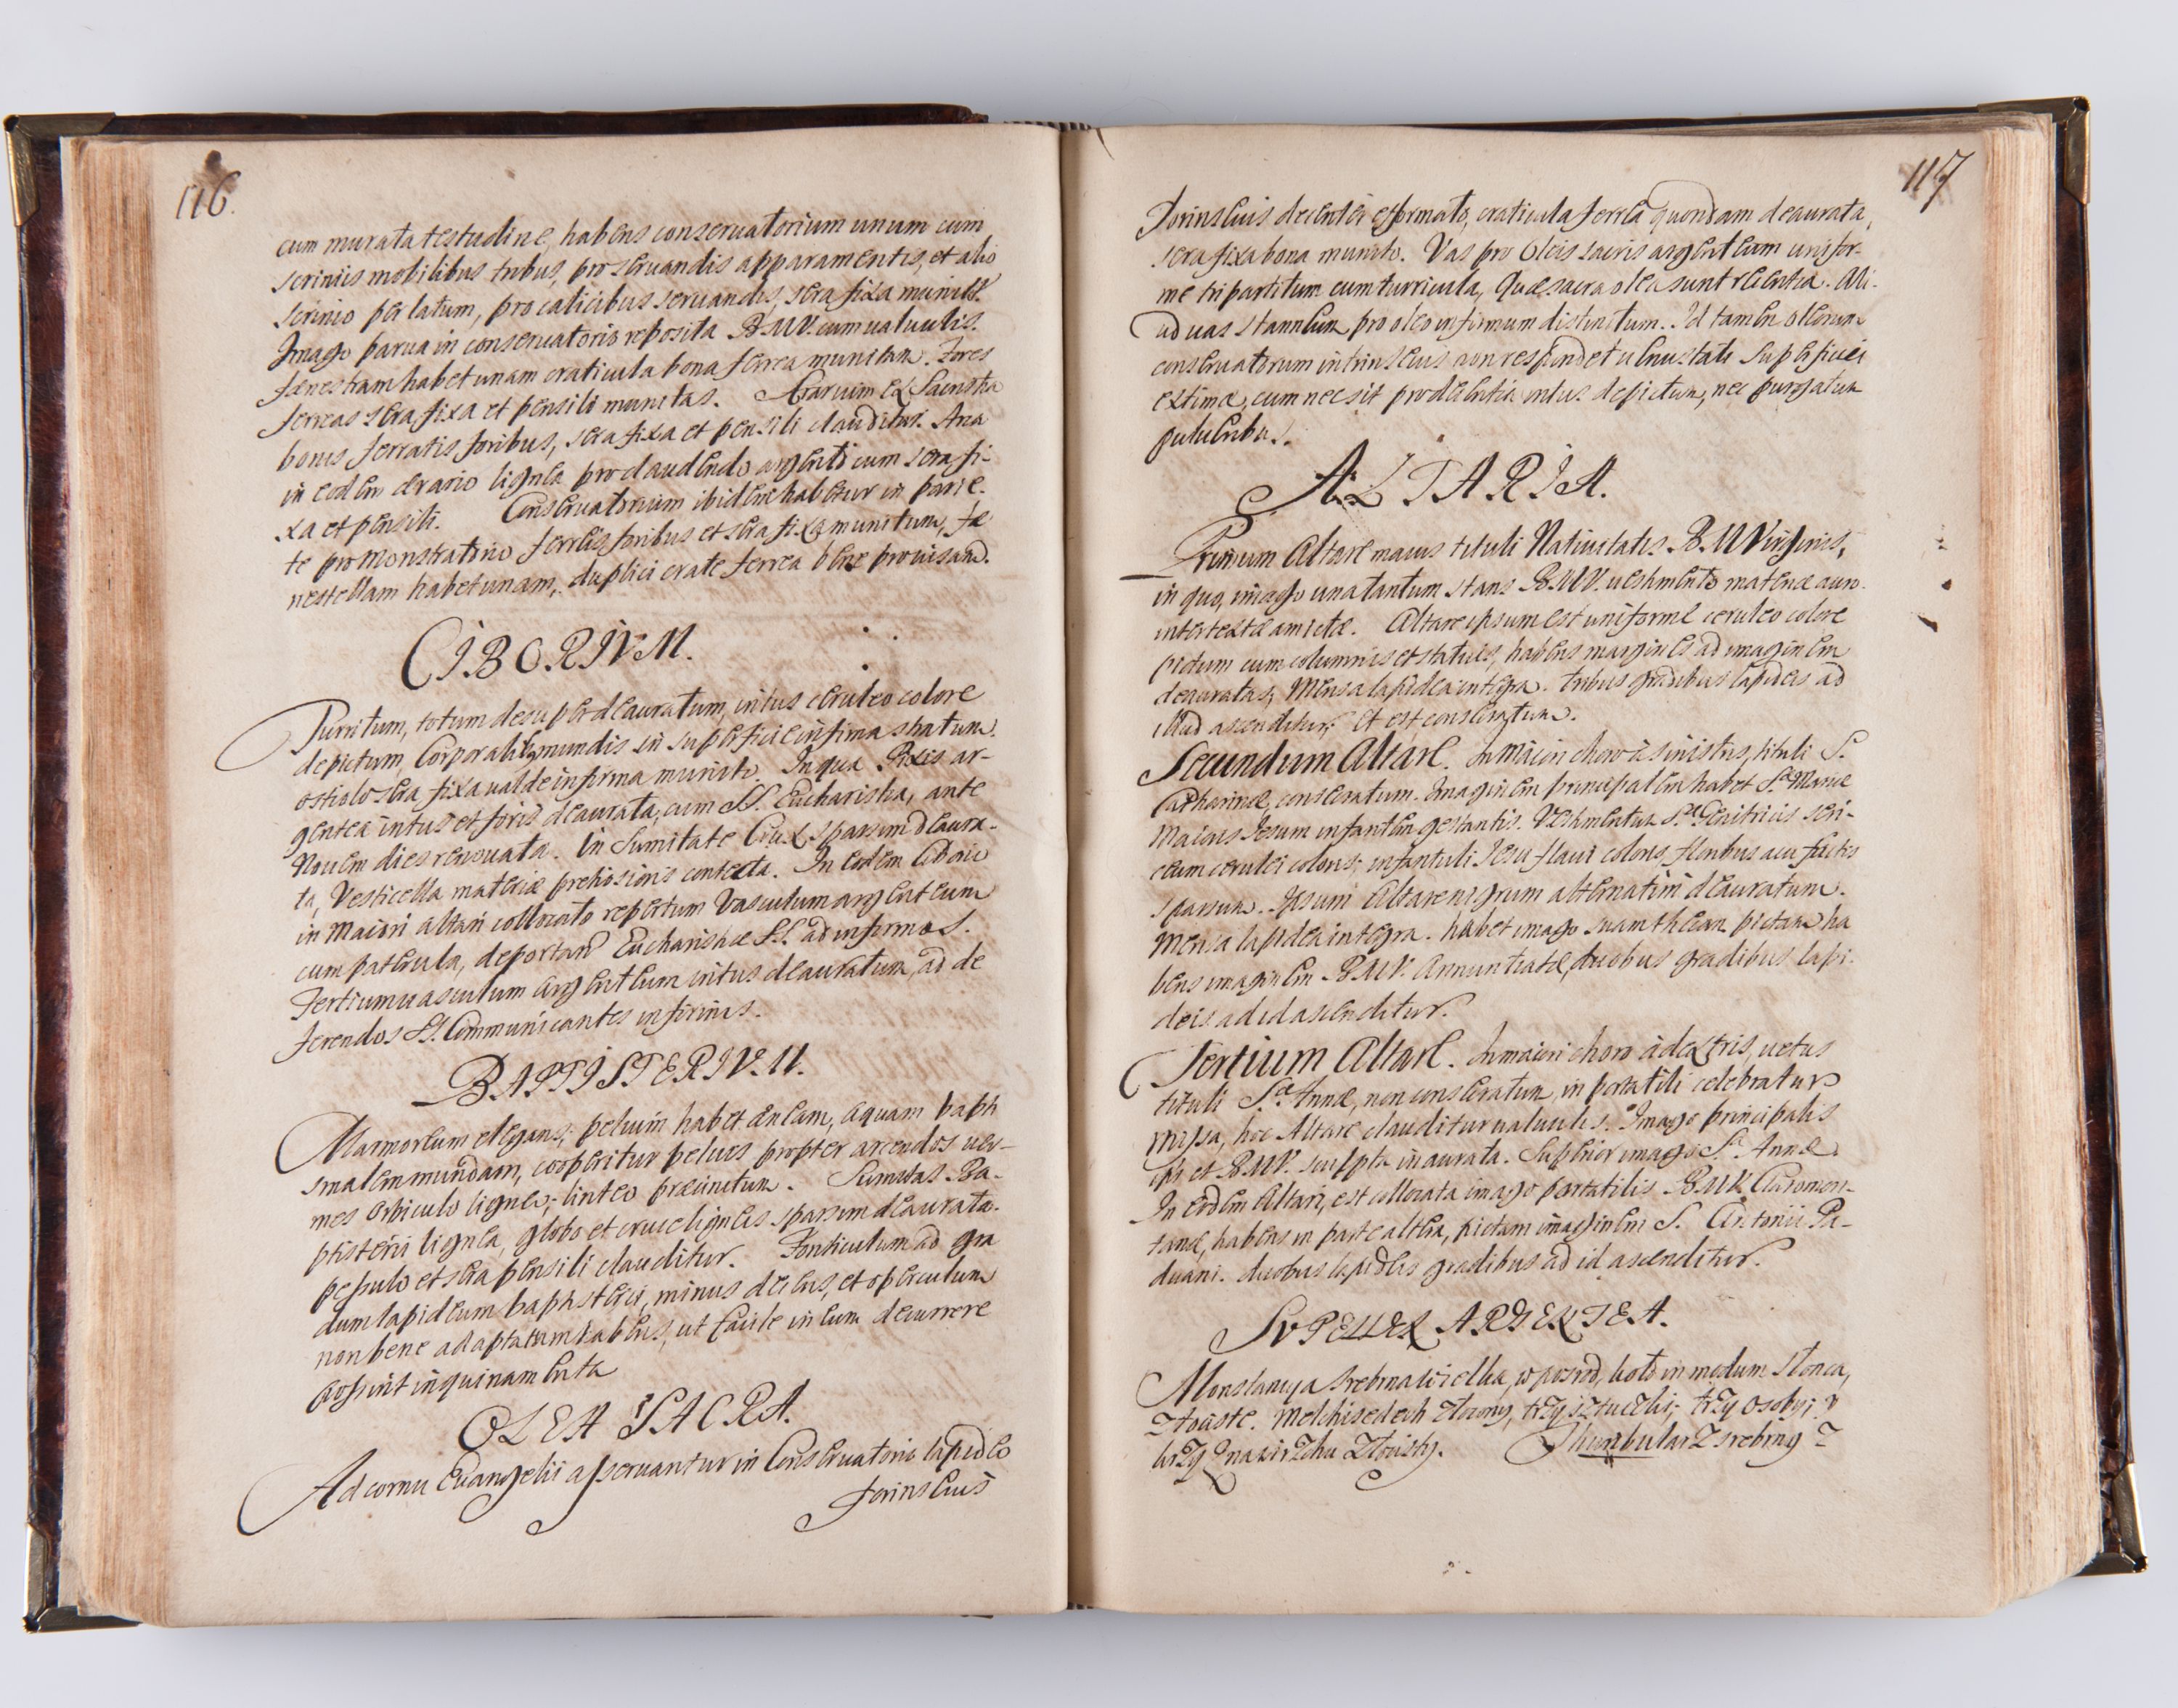 116.
cum murata testudine, habens conseruatorium unum cum
scriniis mobilibus tribus, pro seruandis apparamentis, et alio
scrinio per latum, pro calicibus seruandis, sera fixa munitis.
Imago parua in conseruatorio reposita B.M.V. cum ualuulis.
Fenestram habet unam craticula bona ferrea munitam. Fores
ferreas sera fixa et pensili munitas. Ærarium ex
bonis ferratis foribus, sera fixa et pensili clauditur.
in eodem ærario lignea pro claudendo argento cum sera fi-
xa et pensili. Conseruatorium ibidem habetur in parie-
te pro Monstratorio ferreis foribus et sera fixa munitum, fæ
nestellam habet unam, duplici crate ferrea bene prouisam.
CIBORIVM.
Turritum, totum desuper deauratum, intus ceruleo colore
depictum, Corporalibus mundis in superficie infima stratum.
ostiolo sera fixa ualde infirma munito. In qua Pixis ar-
gentea intus et foris deaurata, cum SS. Eucharistia, ante
Nouem dies renouata. In Sumitate Crux sparsim deaura-
ta, Vesticella materiæ pretiosioris contecta. In eodem Ciborio
in Maiori altari collocato repertum Vasculum argenteum
cum patenula, deportan Eucharistiæ SS. ad infirmos.
Tertium uasculum argenteum intus deauratum, ad de
ferendos SS. Communicantes infirmis.
BAPTISTERIVM.
Marmoreum elegans; peluim habet æneam, aquam bapti
smalem mundam, cooperitur peluis propter arcendos uer-
mes orbiculo ligneo; linteo præcinctum. Sumitas Ba-
ptisterii lignea, globo et cruce ligneis sparsim deaurata.
pessulo et sera pensili clauditur. Fonticulum ad gra
dum lapideum baptisterii, minus decens, et operculum
non bene adaptatum habens, ut facile in eum decurrere
possint inquinamenta
OLEA SACRA.
Ad cornu Euangelii asseruantur in Conseruatorio lapideo
forinsecus
117
forinsecus decenter efformato, craticula ferrea quondam deaurata,
sera fixa bona munito. Vas pro Oleis sacris argenteum unifor-
me tripartitum cum turricula, Quæ sacra olea sunt recentia. Ali-
ud uas stanneum pro oleo infirmum distinctum. Id tamen oleorum
conseruatorium intrinsecus non respondet uenustati superficiei
extimæ, cum nec sit pro decentia intus depictum, nec purgatum
pulueribus.
ALTARIA.
Primum Altare maius tituli Natiuitatis B.M Virginis,
in quo, imago una tantum stans B.M.V. uestimento materiæ auro
intertextæ amicta. Altare ipsum est uniforme ceruleo colore
pictum cum columnis et statuis, habens margines ad imaginem
deauratas; Mensa lapidea integra. tribus gradibus lapideis ad
illud ascenditur; et est consecratum.
Secundum Altare. In maiori choro à sinistris, tituli S.
Catharinæ, consecratum. Imaginem principalem habet S. Mariæ
Maioris Iesum infantem gestantis. Vestimentum Sæ Genitricis seri-
ceum cerulei coloris; infantuli Iesu flaui coloris, floribus acu factis
sparsum. Ipsum Altare nigrum alternatim deauratum.
Mensa lapidea integra. habet imago suam thecam pictam ha
bens imaginem B.M.V. Annuntiatæ, duobus gradibus lapi-
deis ad id ascenditur.
Tertium Altare. In maiori choro à dextris, uetus
tituli Sæ Annæ, non consecratum, in portatili celebratur
missa, hoc Altare clauditur ualuulis. Imago principalis
et B.M.V. sculpta inaurata. Superior imago Sæ Annæ.
In eodem Altari, est collocata imago portatilis B.M.V. Claromon-
tanæ, habens in parte altera, pictam imaginem S. Antonii Pa-
duani. duobus lapideis gradibus ad id ascenditur.
SVPELLEX ARGENTEA.
Monstancya srebrna wielka, w posrod, koło in modum słonca,
złociste. Melchisedech złocony, trzy sztuczki; trzy osoby; v
krzyz na wirzchu złocisty. Thuribularz srebrny z